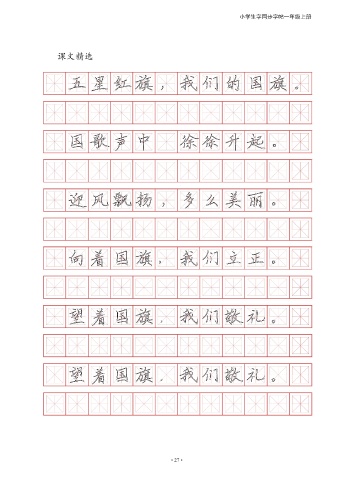 小学生字同步字帖一年级上册
课文精选
五星红旗，我们的国旗。
国歌声中 徐徐升起。
迎风飘扬，多么美丽。
向着国旗，我们立正。
望着国旗，我们敬礼。
望着国旗，我们敬礼。
·27·